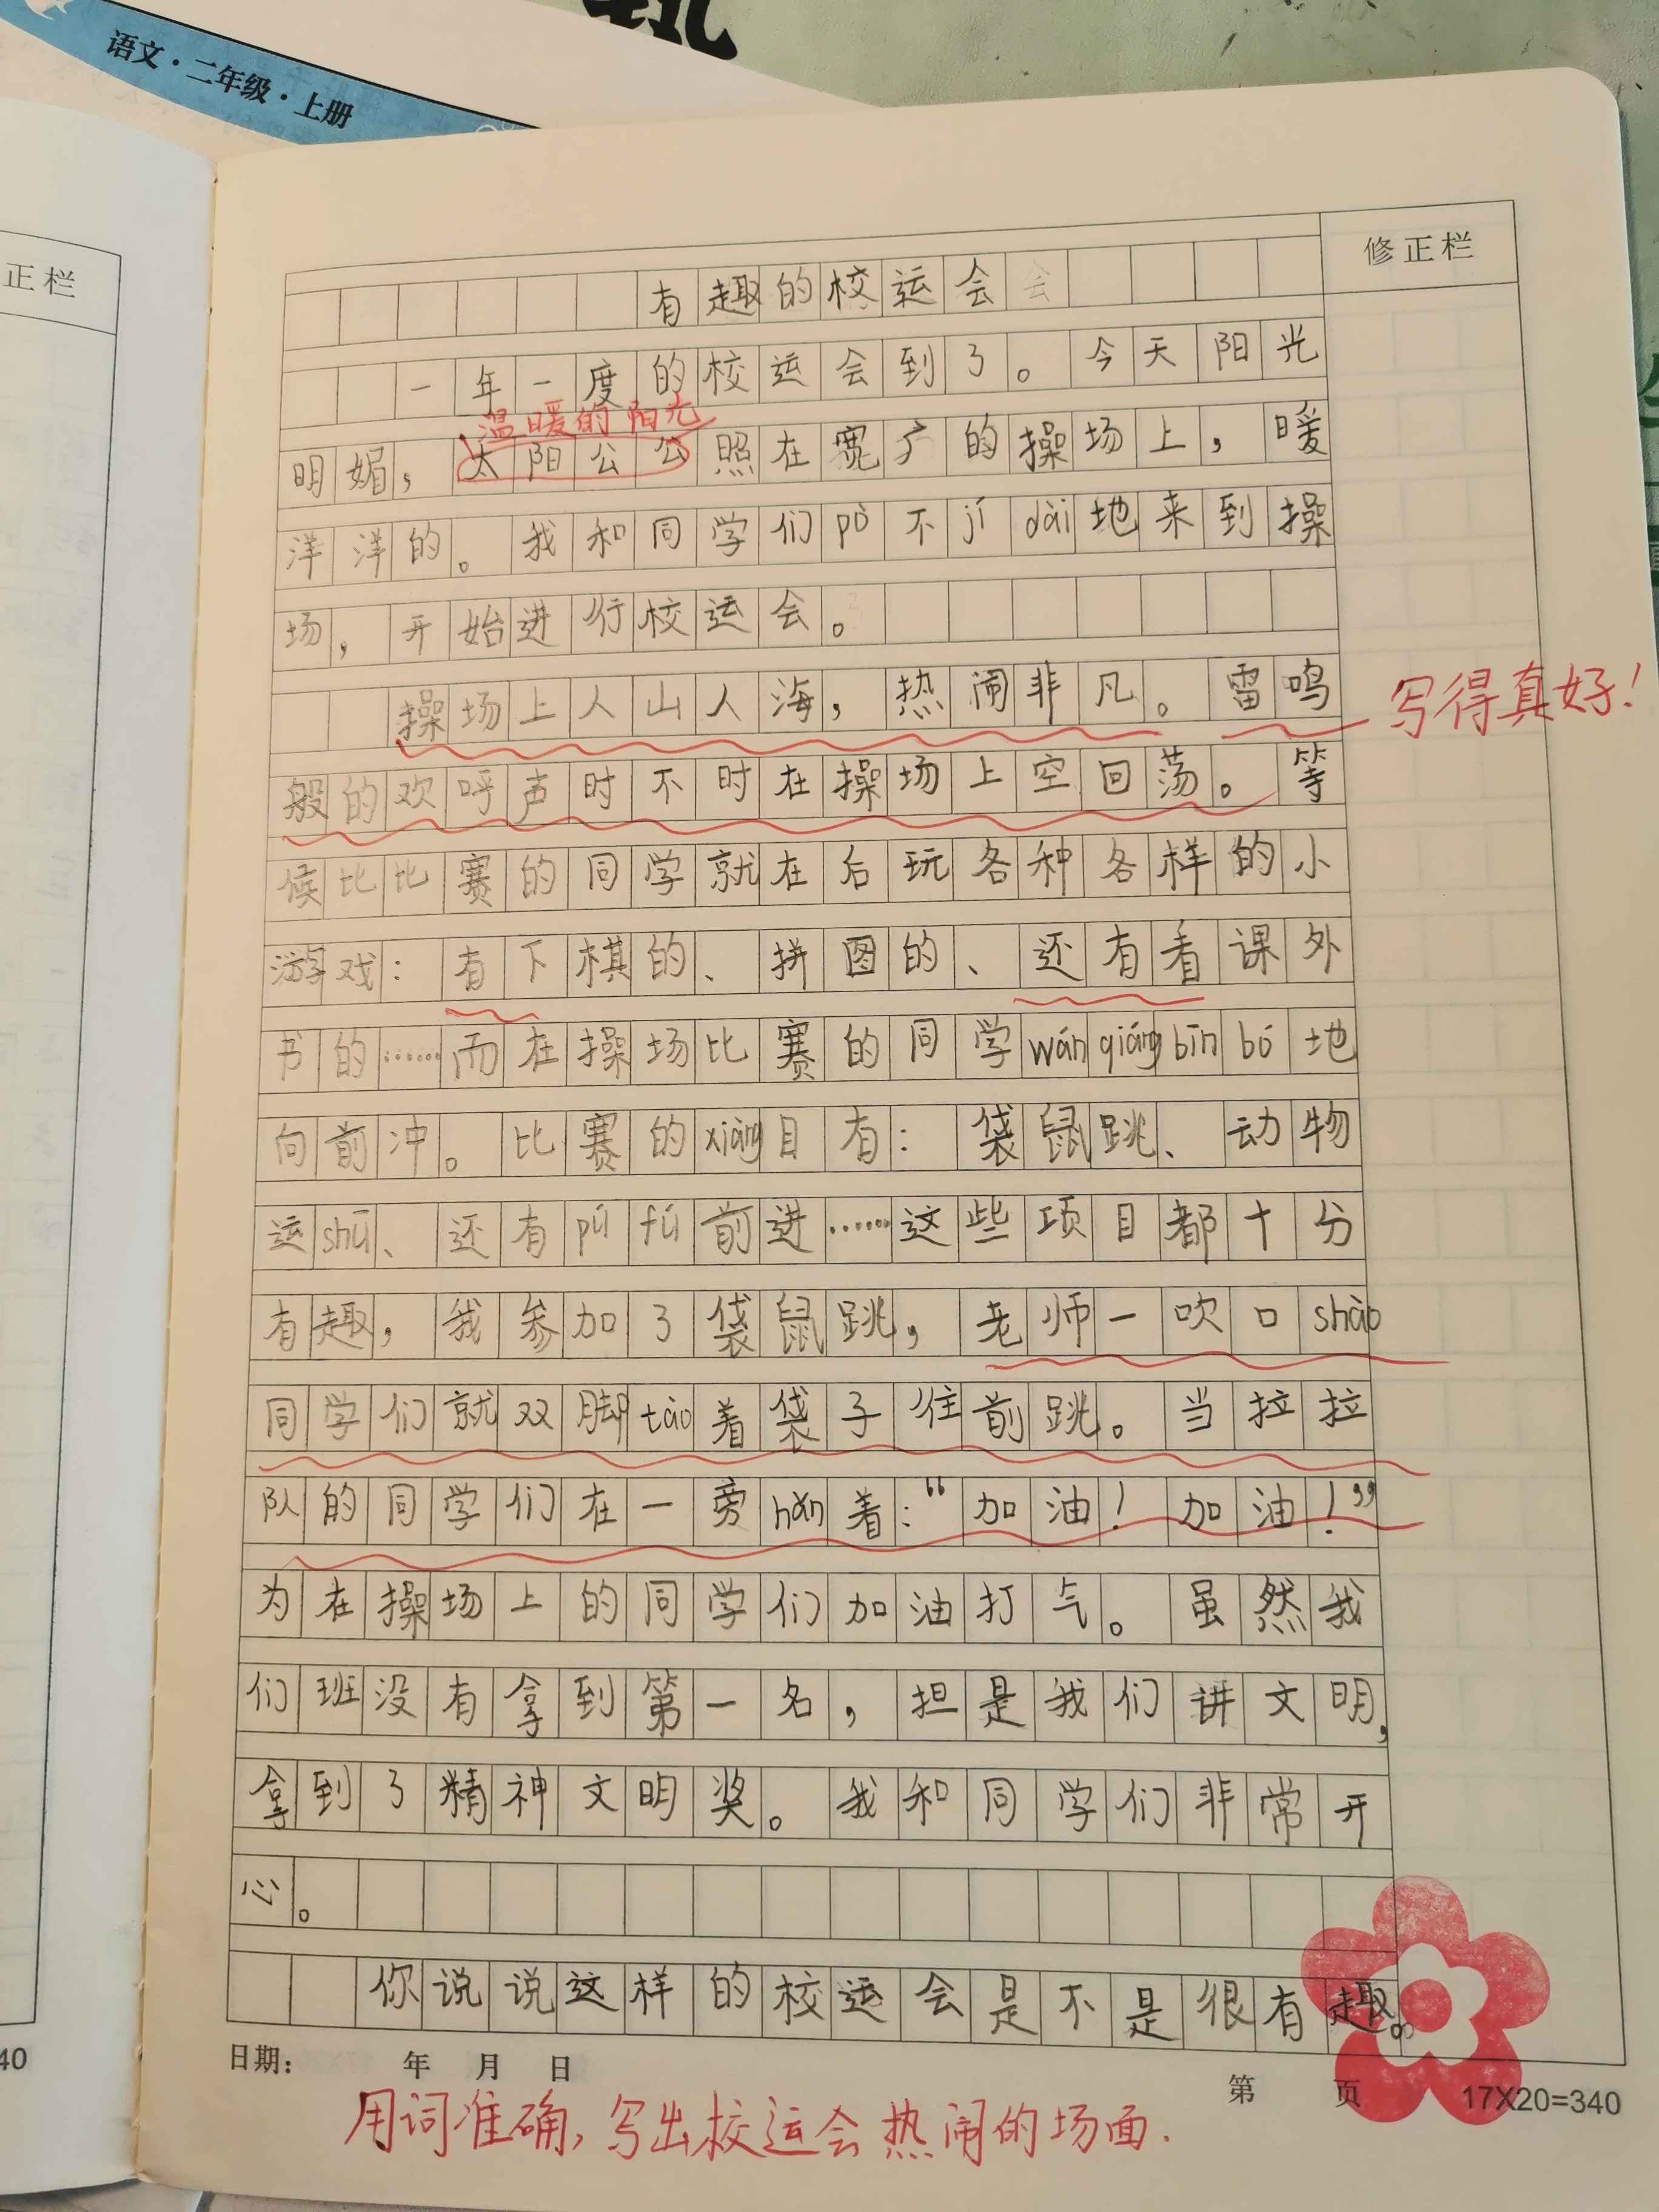 语文·二年级·上册
正栏
修正栏
有趣的校运会
一年一度的校运会到了。今天阳光
温暖的阳光
明媚，太阳公公照在宽广的操场上，暖
洋洋的。我和同学们pò不jí dài地来到操
场，开始进行校运会。
操场上人山人海，热闹非凡。雷鸣
写得真好！
般的欢呼声时不时在操场上空回荡。等
候比比赛的同学就在后玩各种各样的小
游戏：有下棋的、拼图的、还有看课外
书的……而在操场比赛的同学wán qiáng bīn bó地
向前冲。比赛的xiàng目有：袋鼠跳、动物
运shū、还有pú fú前进……这些项目都十分
有趣，我参加了袋鼠跳，老师一吹口shào
同学们就双脚tào着袋子往前跳。当拉拉
队的同学们在一旁hǎn着：“加油！加油！”
为在操场上的同学们加油打气。虽然我
们班没有拿到第一名，担是我们讲文明，
拿到了精神文明奖。我和同学们非常开
心。
你说说这样的校运会是不是很有趣。
日期： 年 月 日
第 页 17X20=340
40
用词准确，写出校运会热闹的场面.